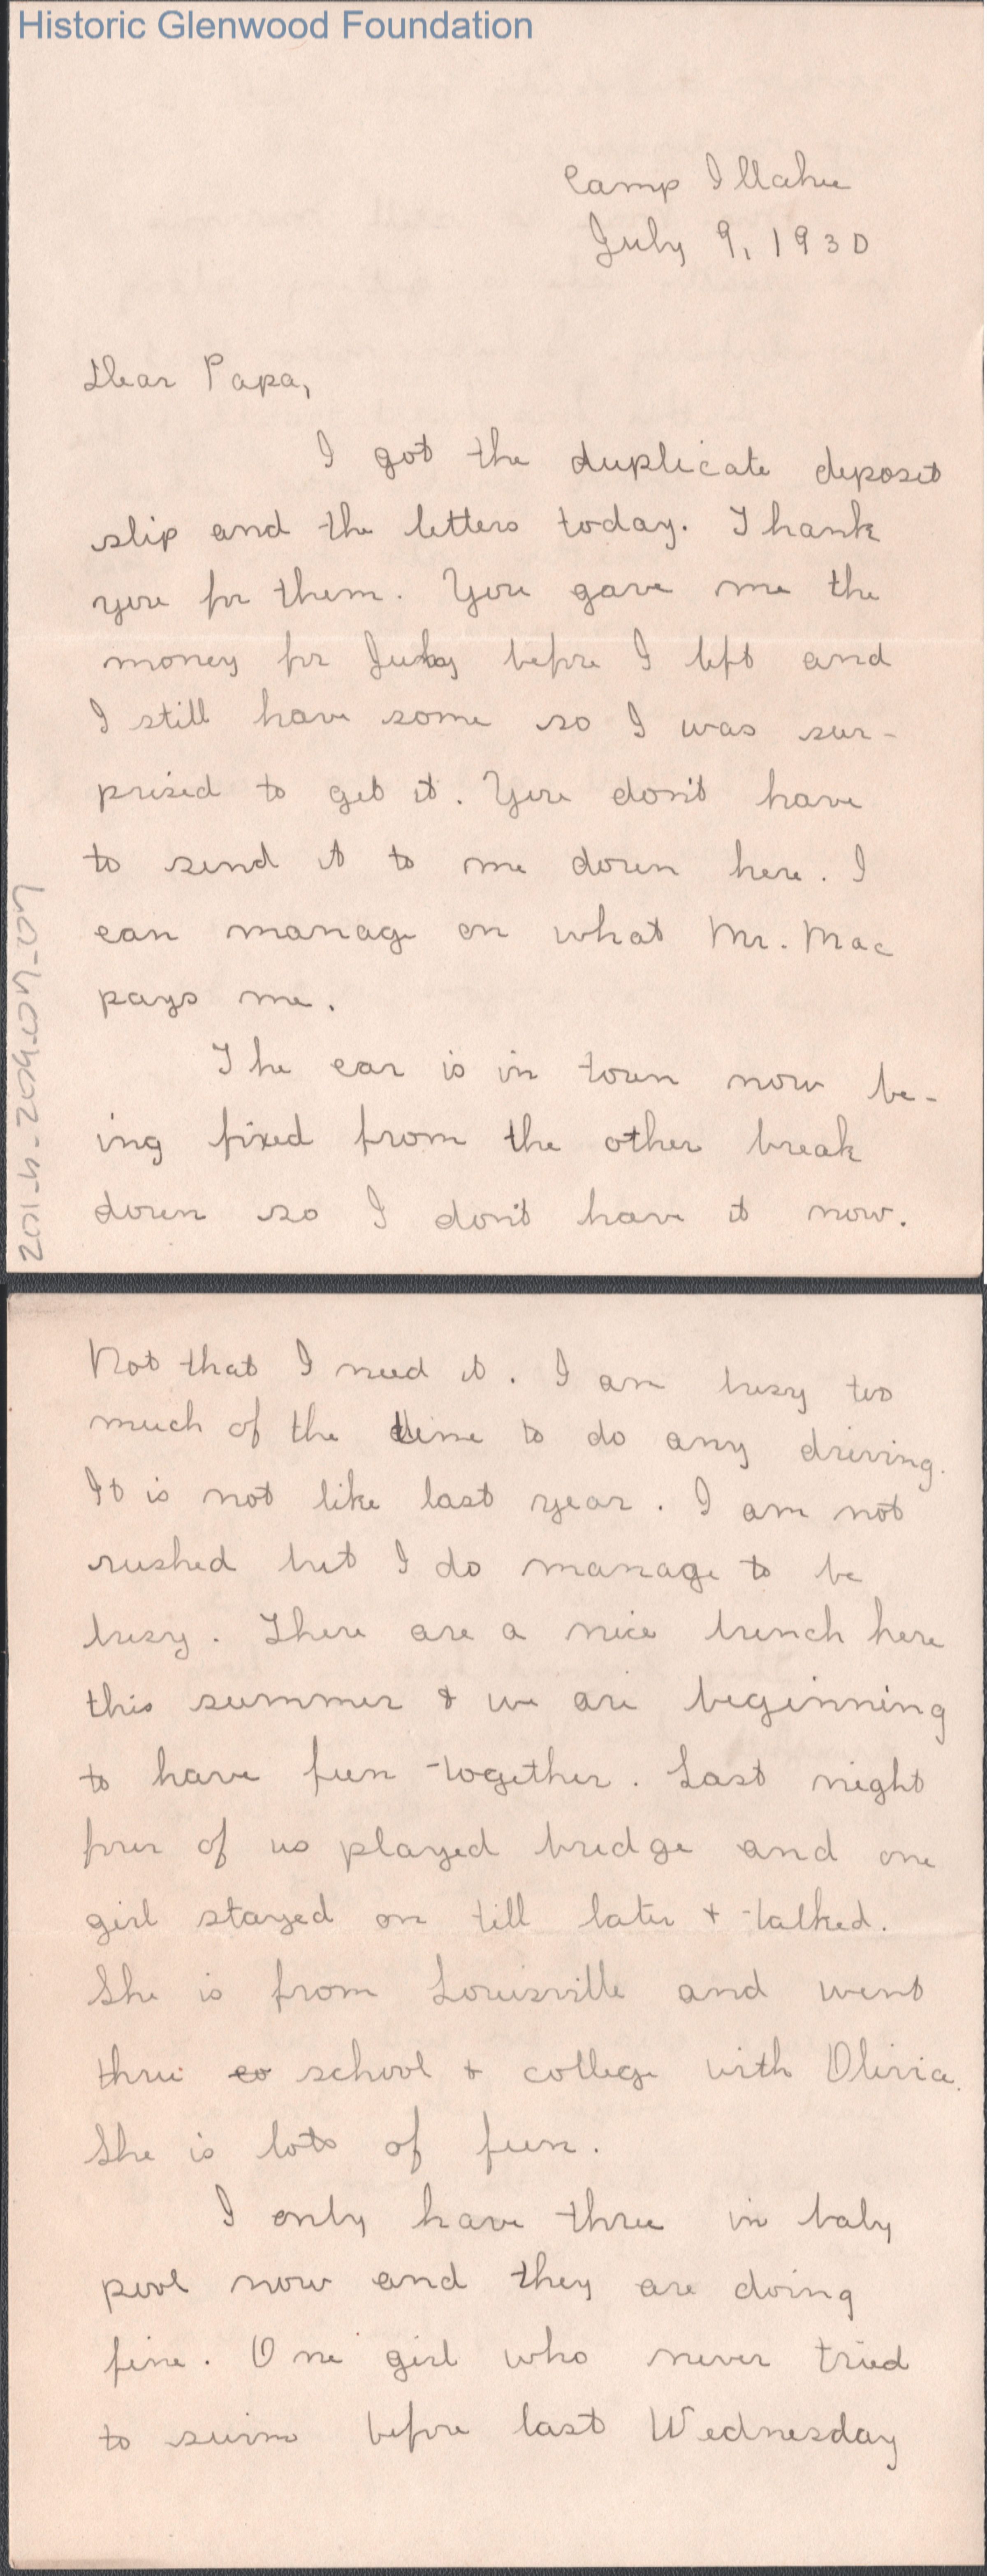 Historic Glenwood Foundation
Camp Illahee
July 9, 1930
Dear Papa,
I got the duplicate deposit
slip and the letters today. Thank
you for them. You gave me the
money for July before I left and
I still have some so I was sur-
prised to get it. You don't have
to send it to me down here. I
can manage on what Mr. Mac
pays me.
The car is in town now be-
ing fixed from the other break
down so I don't have it now.
Not that I need it. I am busy too
much of the time to do any driving.
It is not like last year. I am not
rushed but I do manage to be
busy. There are a nice bunch here
this summer & we are beginning
to have fun together. Last night
four of us played bridge and one
girl stayed on till later + talked.
She is from Louisville and went
thru co school + college with Olivia.
She is lots of fun.
I only have three in baby
pool now and they are doing
fine. One girl who never tried
to swim before last Wednesday